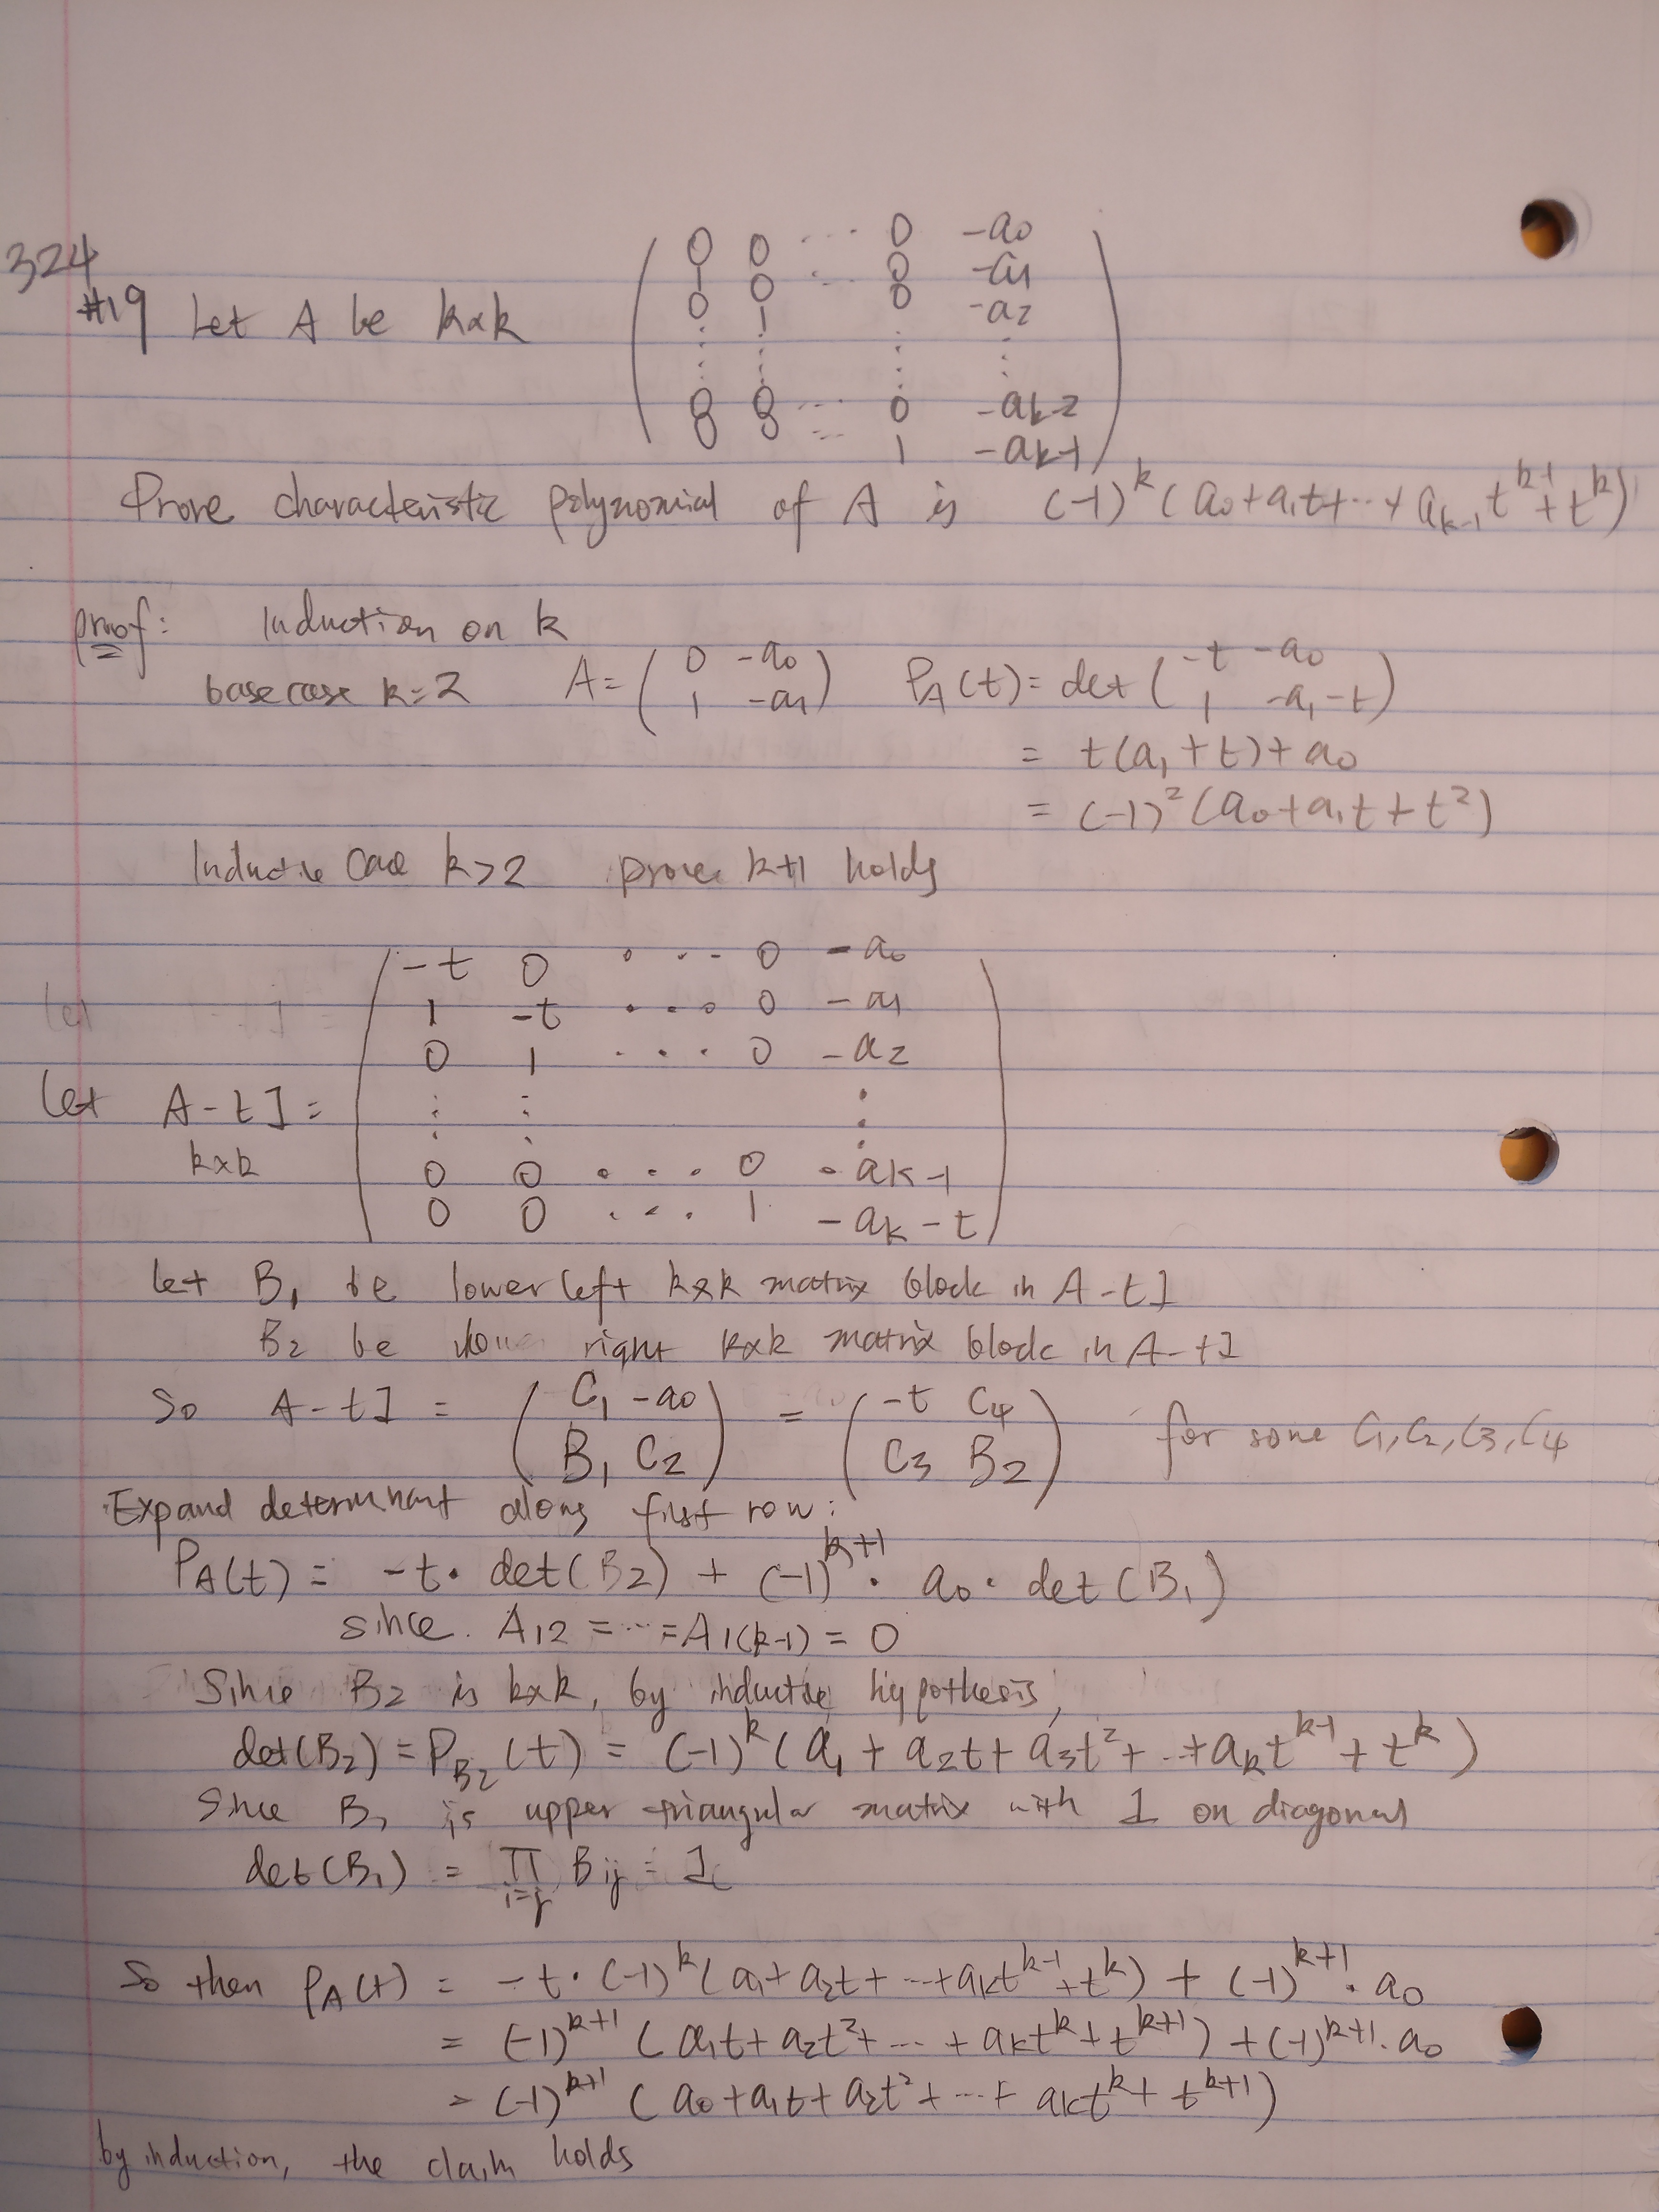 324
#19 Let A be k×k
0 0 ... 0 -a0
1 0 ... 0 -a1
0 1 0 -a2
0 0 ... 0 -ak-2
0 0 ... 1 -ak-1
Prove characteristic polynomial of A is (-1)^k (a0+a1t+...+ak-1 t^k-1 + t^k)
proof: Induction on k
base case k=2 A = ( 0 -a0 ; 1 -a1 ) PA(t) = det ( -t -a0 ; 1 -a1-t )
= t(a1+t)+a0
= (-1)^2 (a0+a1t+t^2)
Inductive case k>2 prove k+1 holds
-t 0 ... 0 -a0
1 -t ... 0 -a1
0 1 ... 0 -a2
let A-tI =
k×k
0 0 ... 0 -ak-1
0 0 ... 1 -ak-t
let B1 be lower left k×k matrix block in A-tI
B2 be lower right k×k matrix block in A-tI
So A-tI = ( C1 -a0 ; B1 C2 ) = ( -t C4 ; C3 B2 ) for some C1, C2, C3, C4
Expand determinant along first row:
PA(t) = -t · det(B2) + (-1)^k+1 · a0 · det(B1)
since A12 = ... = A1(k-1) = 0
Since B2 is k×k, by inductive hypothesis,
det(B2) = PB2(t) = (-1)^k (a1 + a2t + a3t^2 + ... + akt^k-1 + t^k)
Since B1 is upper triangular matrix with 1 on diagonal
det(B1) = Π i=j Bij = 1
So then PA(t) = -t · (-1)^k (a1+a2t+...+akt^k-1+t^k) + (-1)^k+1 · a0
= (-1)^k+1 (a1t+a2t^2+...+akt^k+t^k+1) + (-1)^k+1 · a0
= (-1)^k+1 (a0+a1t+a2t^2+...+akt^k+t^k+1)
by induction, the claim holds